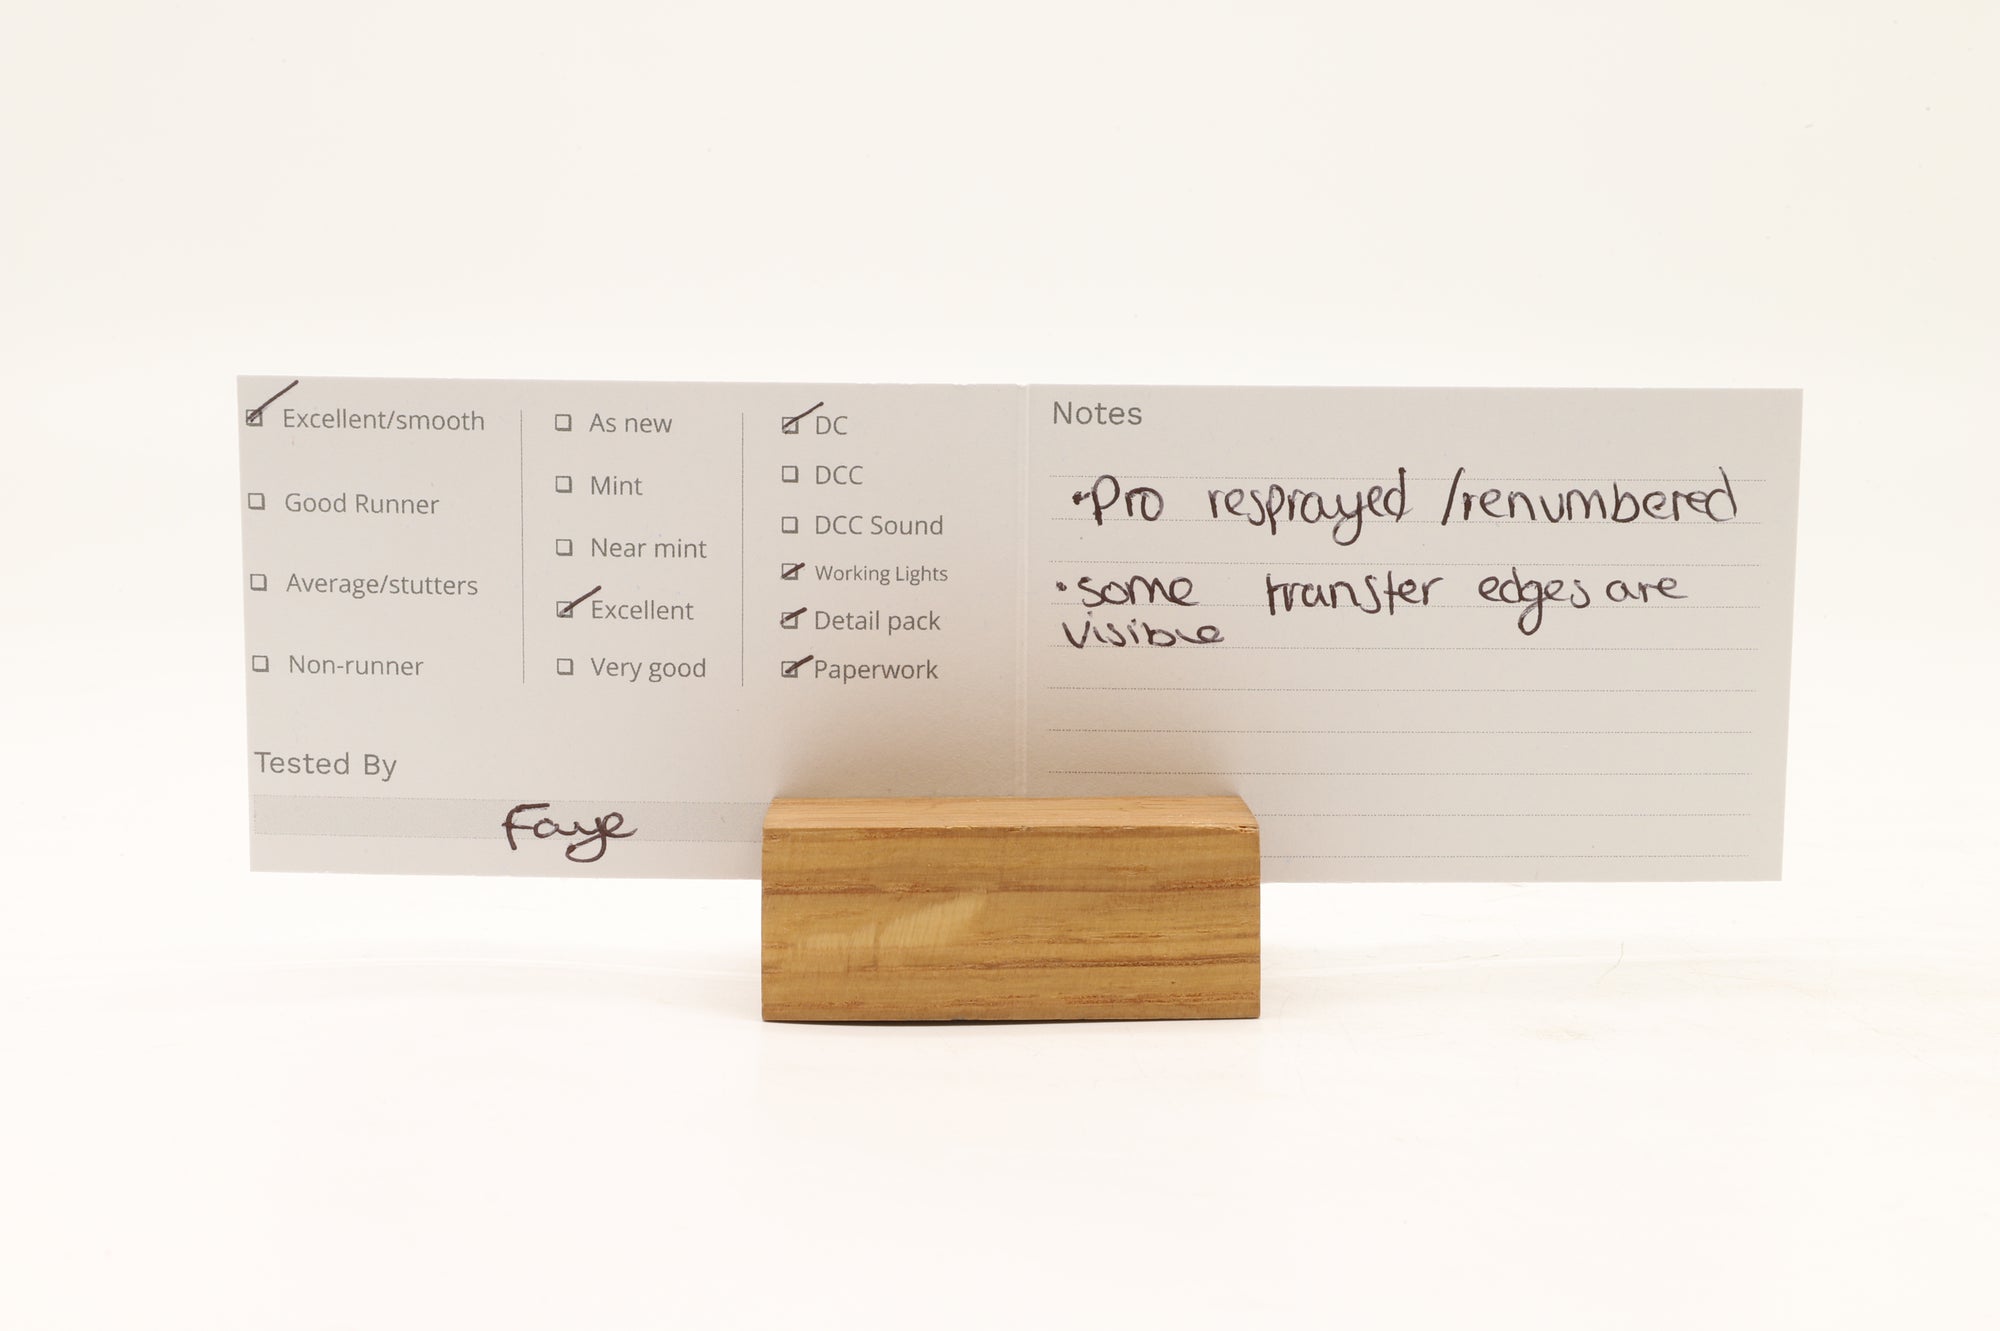 Excellent/smooth
Good Runner
Average/stutters
Non-runner
As new
Mint
Near mint
Excellent
Very good
DC
DCC
DCC Sound
Working Lights
Detail pack
Paperwork
Tested By
Faye
Notes
•Pro resprayed /renumbered
•some transfer edges are
visible